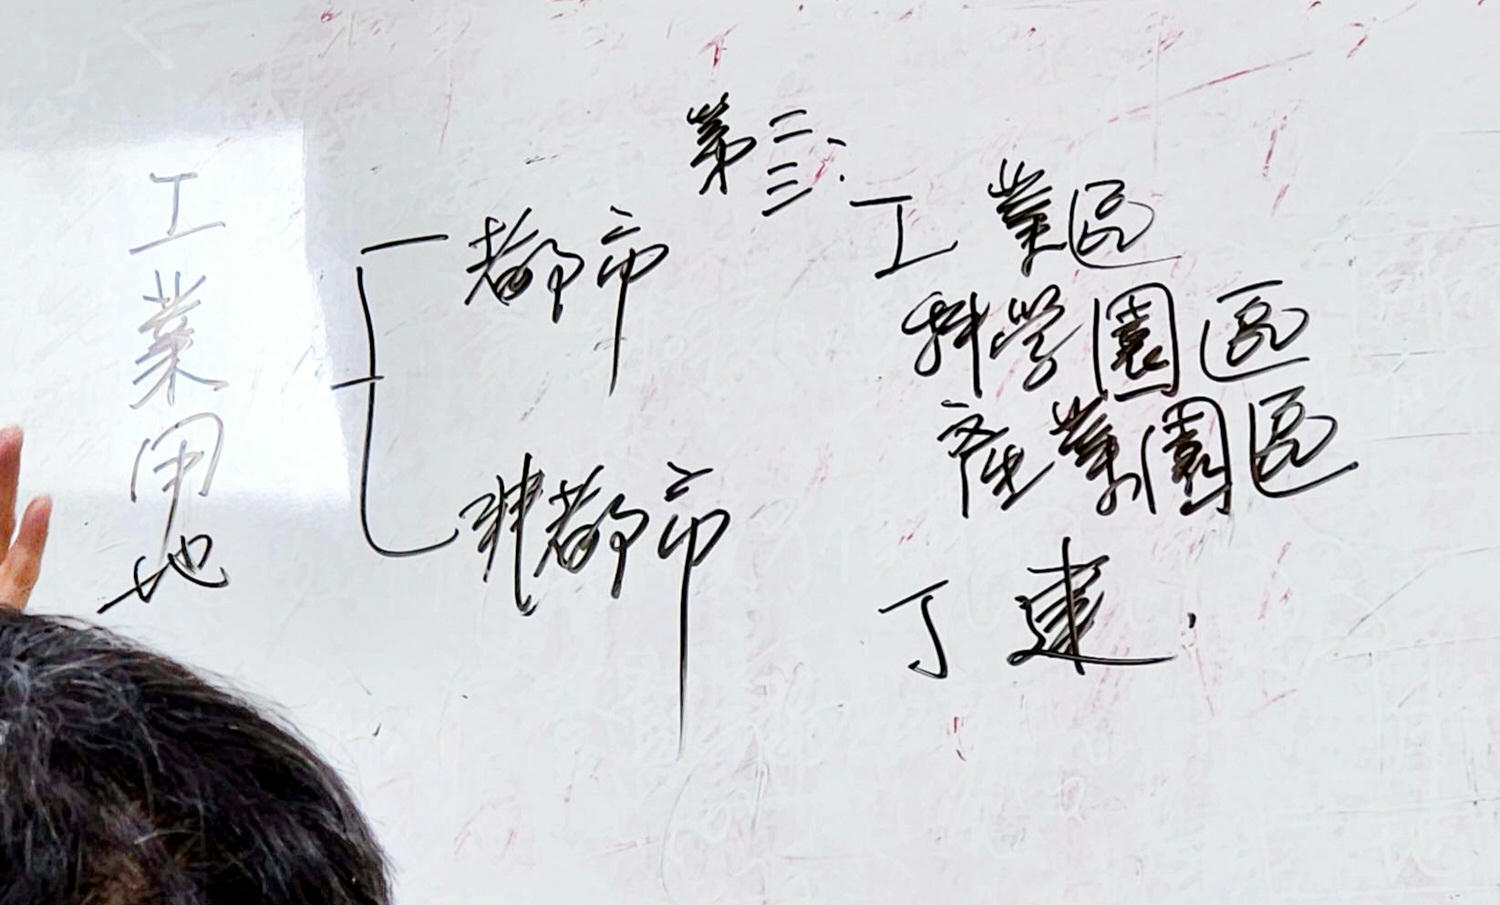 工業用地
都市
非都市
第三
工業區
科學園區
產業園區
丁建